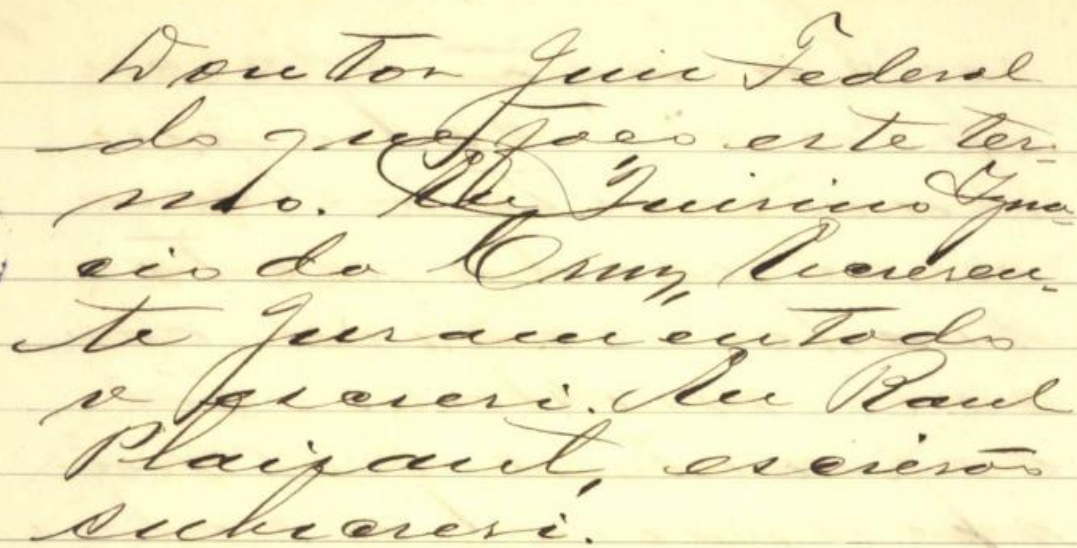 Doutor Juiz Federal
do que faço este ter-
mo. Eu, Quirino Igna-
cio da Cruz, Escreven-
te juramentado
o escrevi. Eu Raul
Plaisant, escrivão
subscrevi.